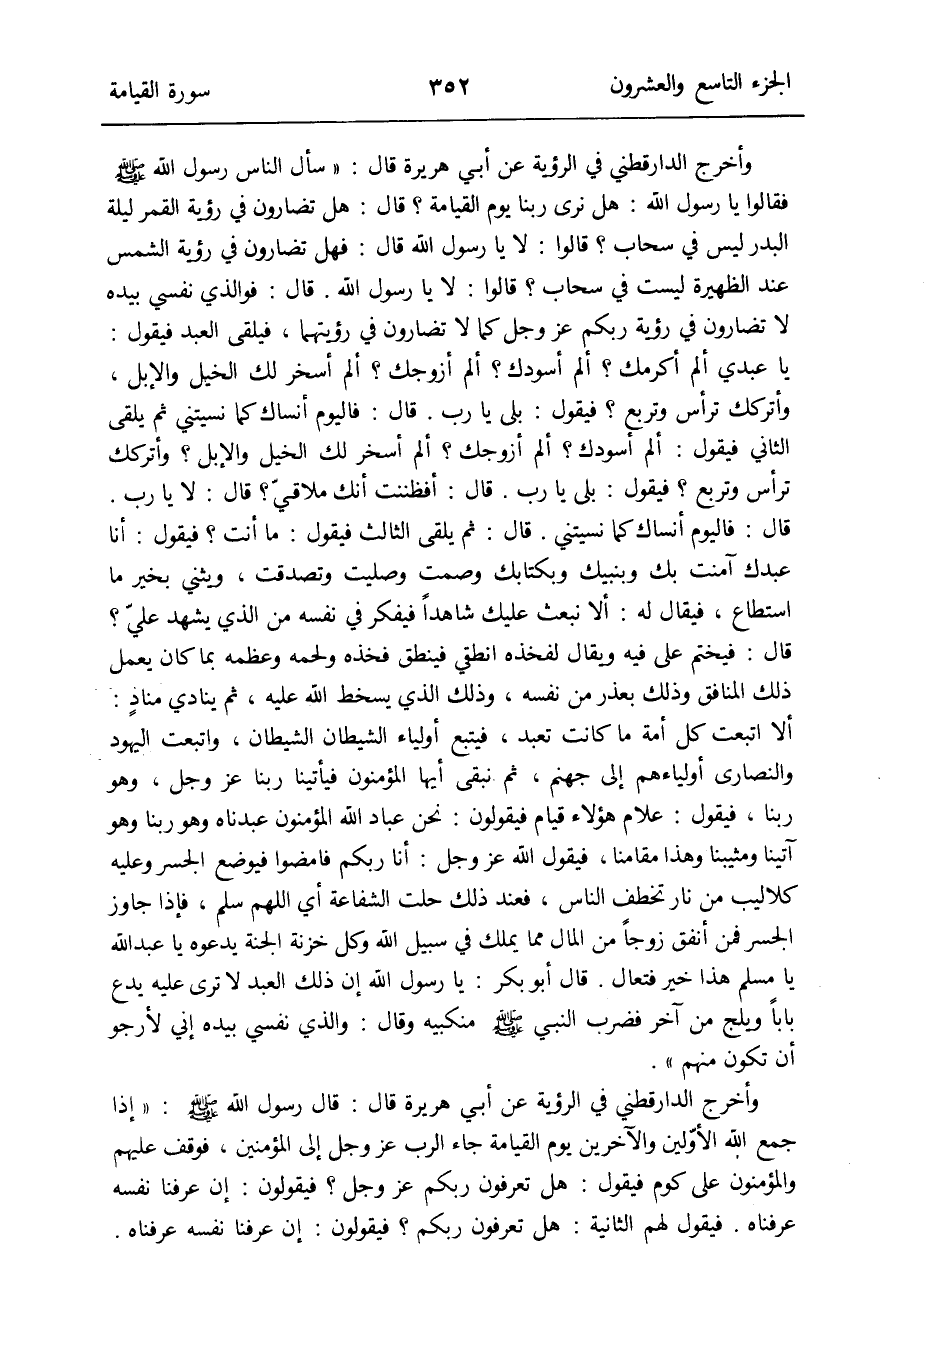 الجزء التاسع والعشرون ٣٥٢ سورة القيامة
وأخرج الدارقطني في الرؤية عن أبي هريرة قال : « سأل الناس رسول الله ﷺ
فقالوا يا رسول الله : هل نرى ربنا يوم القيامة ؟ قال : هل تضارون في رؤية القمر ليلة
البدر ليس في سحاب ؟ قالوا : لا يا رسول الله قال : فهل تضارون في رؤية الشمس
عند الظهيرة ليست في سحاب ؟ قالوا : لا يا رسول الله . قال : فوالذي نفسي بيده
لا تضارون في رؤية ربكم عز وجل كما لا تضارون في رؤيتهما ، فيلقى العبد فيقول :
يا عبدي ألم أكرمك ؟ ألم أسودك ؟ ألم أزوجك ؟ ألم أسخر لك الخيل والإبل ،
وأتركك ترأس وتربع ؟ فيقول : بلى يا رب . قال : فاليوم أنساك كما نسيتني ثم يلقى
الثاني فيقول : ألم أسودك ؟ ألم أزوجك ؟ ألم أسخر لك الخيل والإبل ؟ وأتركك
ترأس وتربع ؟ فيقول : بلى يا رب . قال : أفظننت أنك ملاقيّ ؟ قال : لا يا رب .
قال : فاليوم أنساك كما نسيتني . قال : ثم يلقى الثالث فيقول : ما أنت ؟ فيقول : أنا
عبدك آمنت بك وبنبيك وبكتابك وصمت وصليت وتصدقت ، ويثني بخير ما
استطاع ، فيقال له : ألا نبعث عليك شاهداً فيفكر في نفسه من الذي يشهد عليّ ؟
قال : فيختم على فيه ويقال لفخذه انطقي فينطق فخذه ولحمه وعظمه بما كان يعمل
ذلك المنافق وذلك بعذر من نفسه ، وذلك الذي يسخط الله عليه ، ثم ينادي منادٍ :
ألا اتبعت كل أمة ما كانت تعبد ، فيتبع أولياء الشيطان الشيطان ، واتبعت اليهود
والنصارى أولياءهم إلى جهنم ، ثم نبقى أيها المؤمنون فيأتينا ربنا عز وجل ، وهو
ربنا ، فيقول : علام هؤلاء قيام فيقولون : نحن عباد الله المؤمنون عبدناه وهو ربنا وهو
آتينا ومثيبنا وهذا مقامنا ، فيقول الله عز وجل : أنا ربكم فامضوا فيوضع الجسر وعليه
كلاليب من نار تخطف الناس ، فعند ذلك حلت الشفاعة أي اللهم سلم ، فإذا جاوز
الجسر فمن أنفق زوجاً من المال مما يملك في سبيل الله وكل خزنة الجنة يدعوه يا عبدالله
يا مسلم هذا خير فتعال . قال أبو بكر : يا رسول الله إن ذلك العبد لا ترى عليه يدع
باباً ويلج من آخر فضرب النبي ﷺ منكبيه وقال : والذي نفسي بيده إني لأرجو
أن تكون منهم » .
وأخرج الدارقطني في الرؤية عن أبي هريرة قال : قال رسول الله ﷺ : « إذا
جمع الله الأوّلين والآخرين يوم القيامة جاء الرب عز وجل إلى المؤمنين ، فوقف عليهم
والمؤمنون على كوم فيقول : هل تعرفون ربكم عز وجل ؟ فيقولون : إن عرفنا نفسه
عرفناه . فيقول لهم الثانية : هل تعرفون ربكم ؟ فيقولون : إن عرفنا نفسه عرفناه .